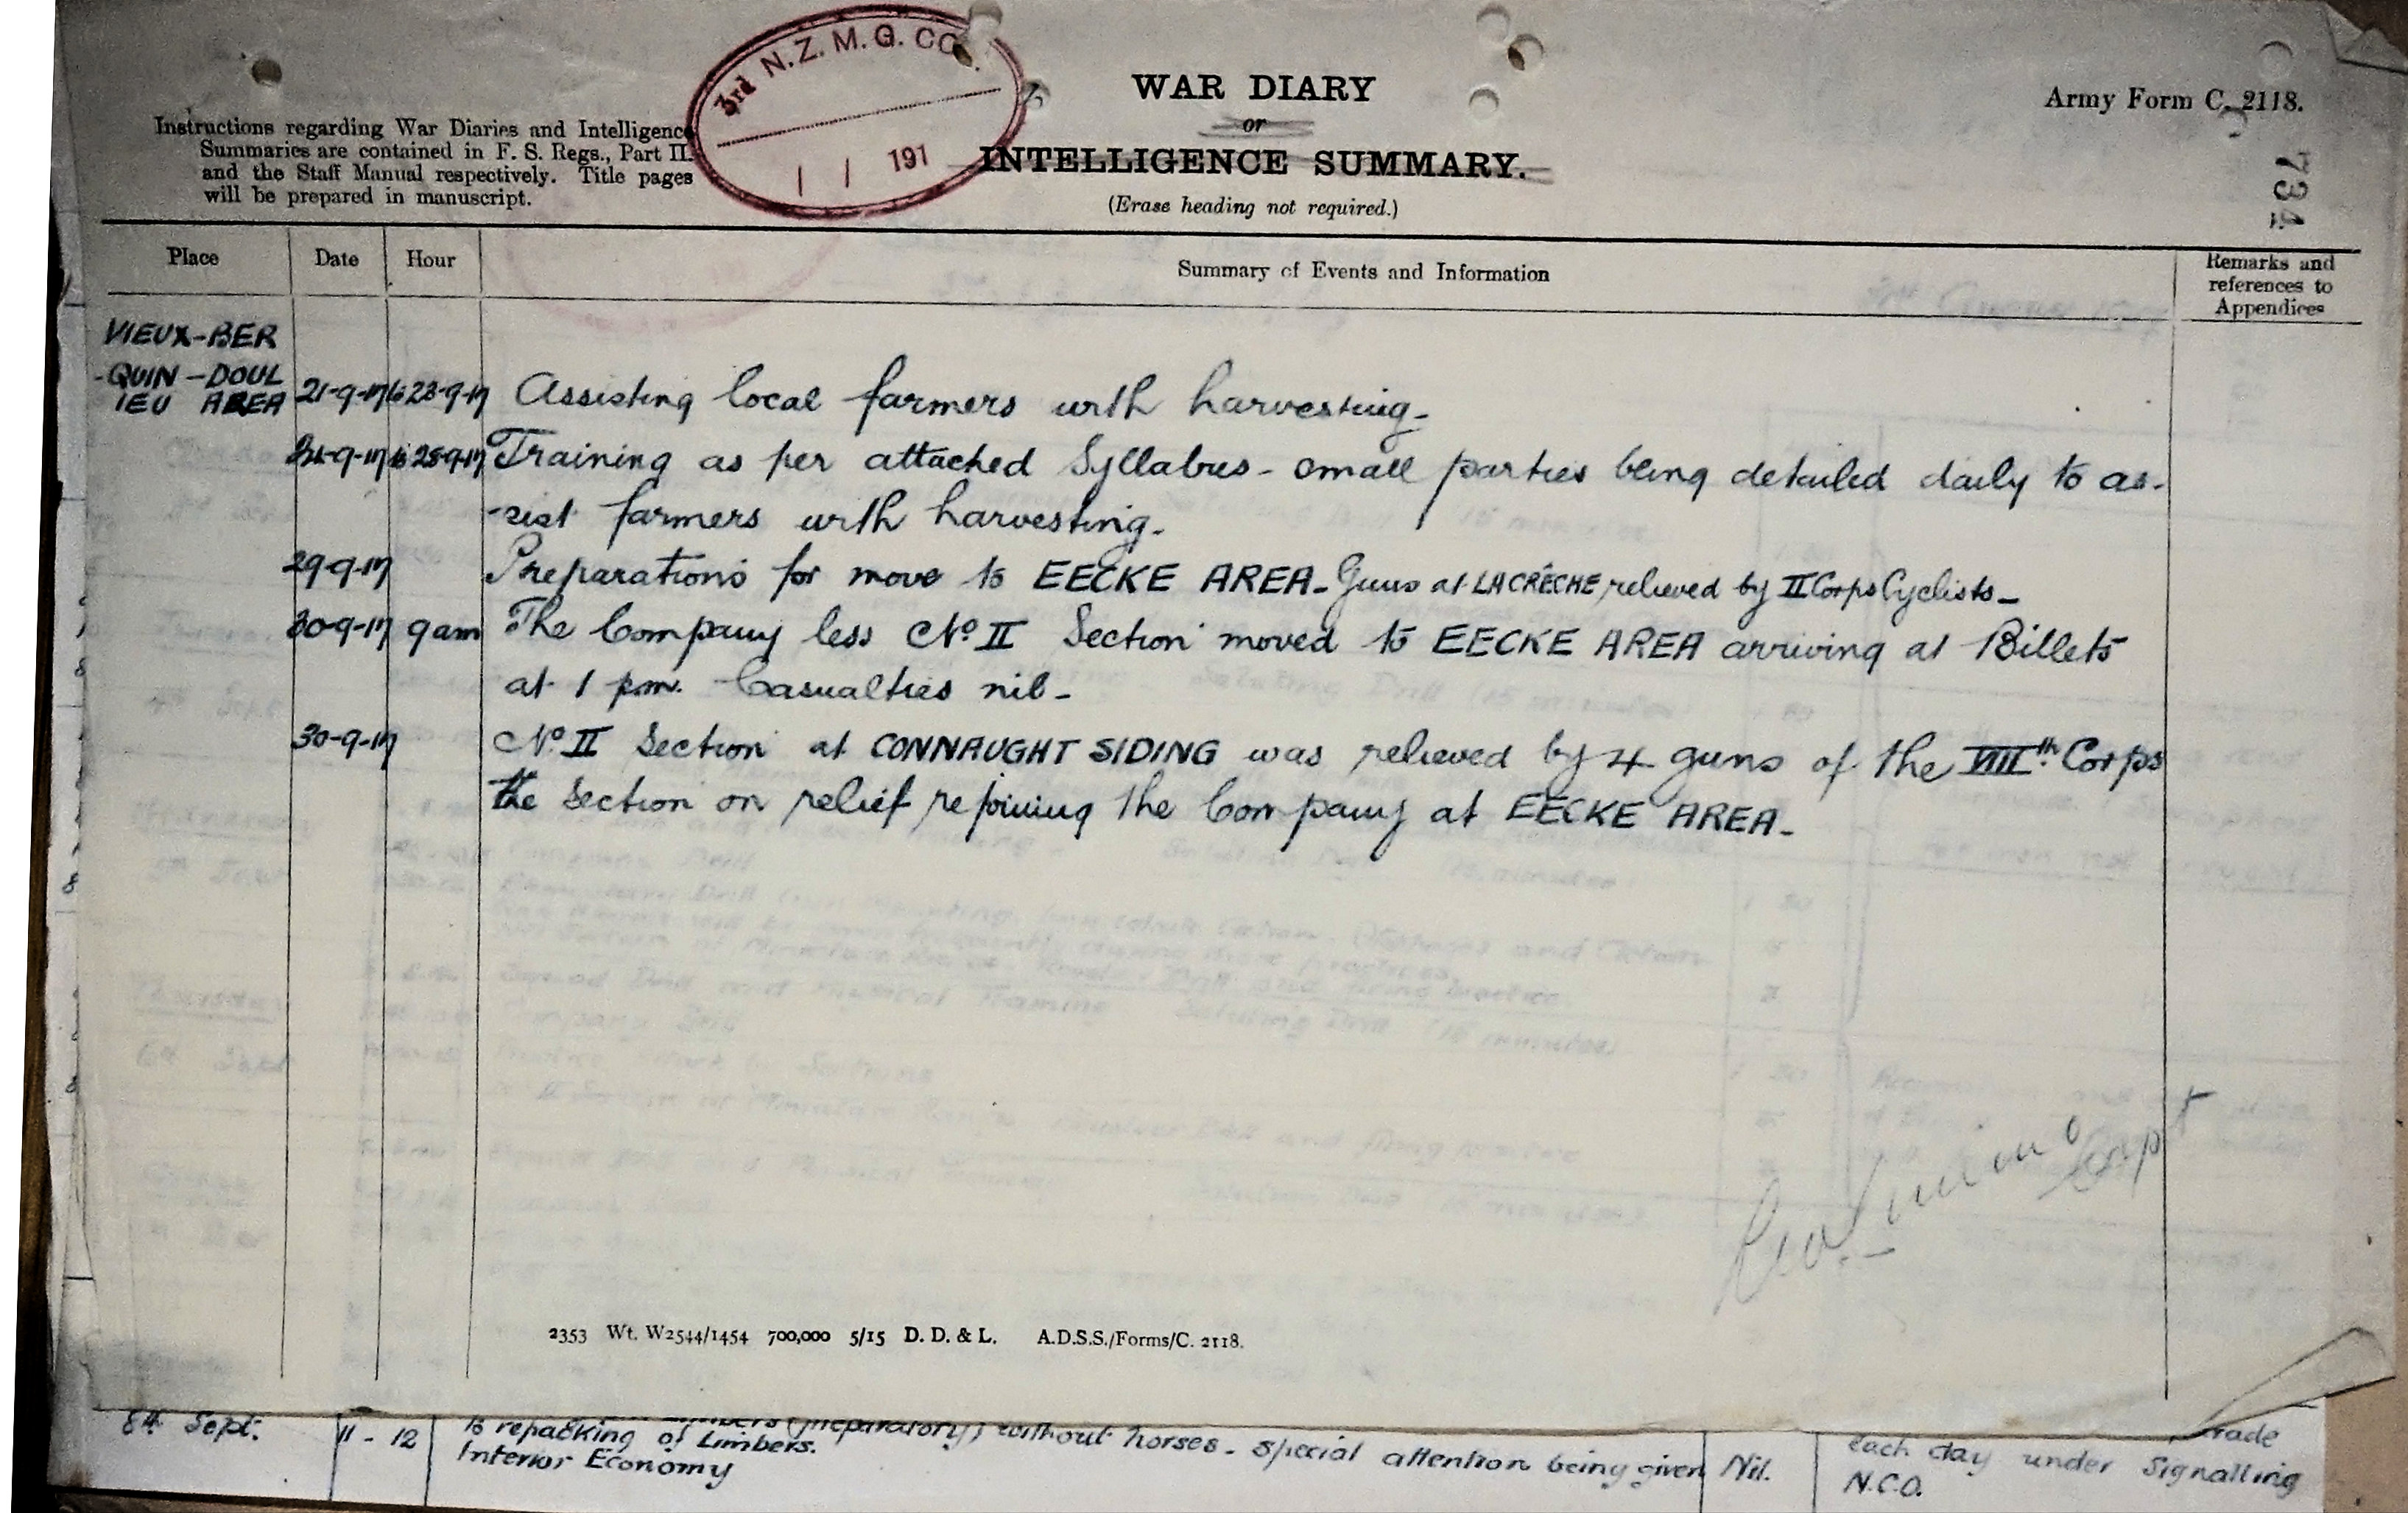 3rd N.Z.M.G. CO.
191
WAR DIARY
or
INTELLIGENCE SUMMARY.
(Erase heading not required.)
Army Form C. 2118.
734
Instructions regarding War Diaries and Intelligence
Summaries are contained in F. S. Regs., Part II.
and the Staff Manual respectively. Title pages
will be prepared in manuscript.
Place Date Hour Summary of Events and Information Remarks and references to Appendices
VIEUX-BER
-QUIN-DOUL
IEU AREA 21-9-17 to 23-9-17 Assisting local farmers with harvesting-
24-9-17 to 28-9-17 Training as per attached Syllabus - small parties being detailed daily to as-
-sist farmers with harvesting.
29-9-17 Preparations for move to EECKE AREA- Guns at LA CRÊCHE relieved by II Corps Cyclists-
30-9-17 9am The Company less No. II Section moved to EECKE AREA arriving at Billets
at 1 p.m. Casualties nil-
30-9-17 No. II Section at CONNAUGHT SIDING was relieved by 4 guns of the VIIIth Corps
the Section on relief rejoining the Company at EECKE AREA-
Capt
2353 Wt. W2544/1454 700,000 5/15 D. D. & L. A.D.S.S./Forms/C. 2118.
8th Sept. 11 - 12 to repacking of Limbers. (preparatory) without horses - special attention being given Nil. each day under Signalling
Interior Economy N.C.O.